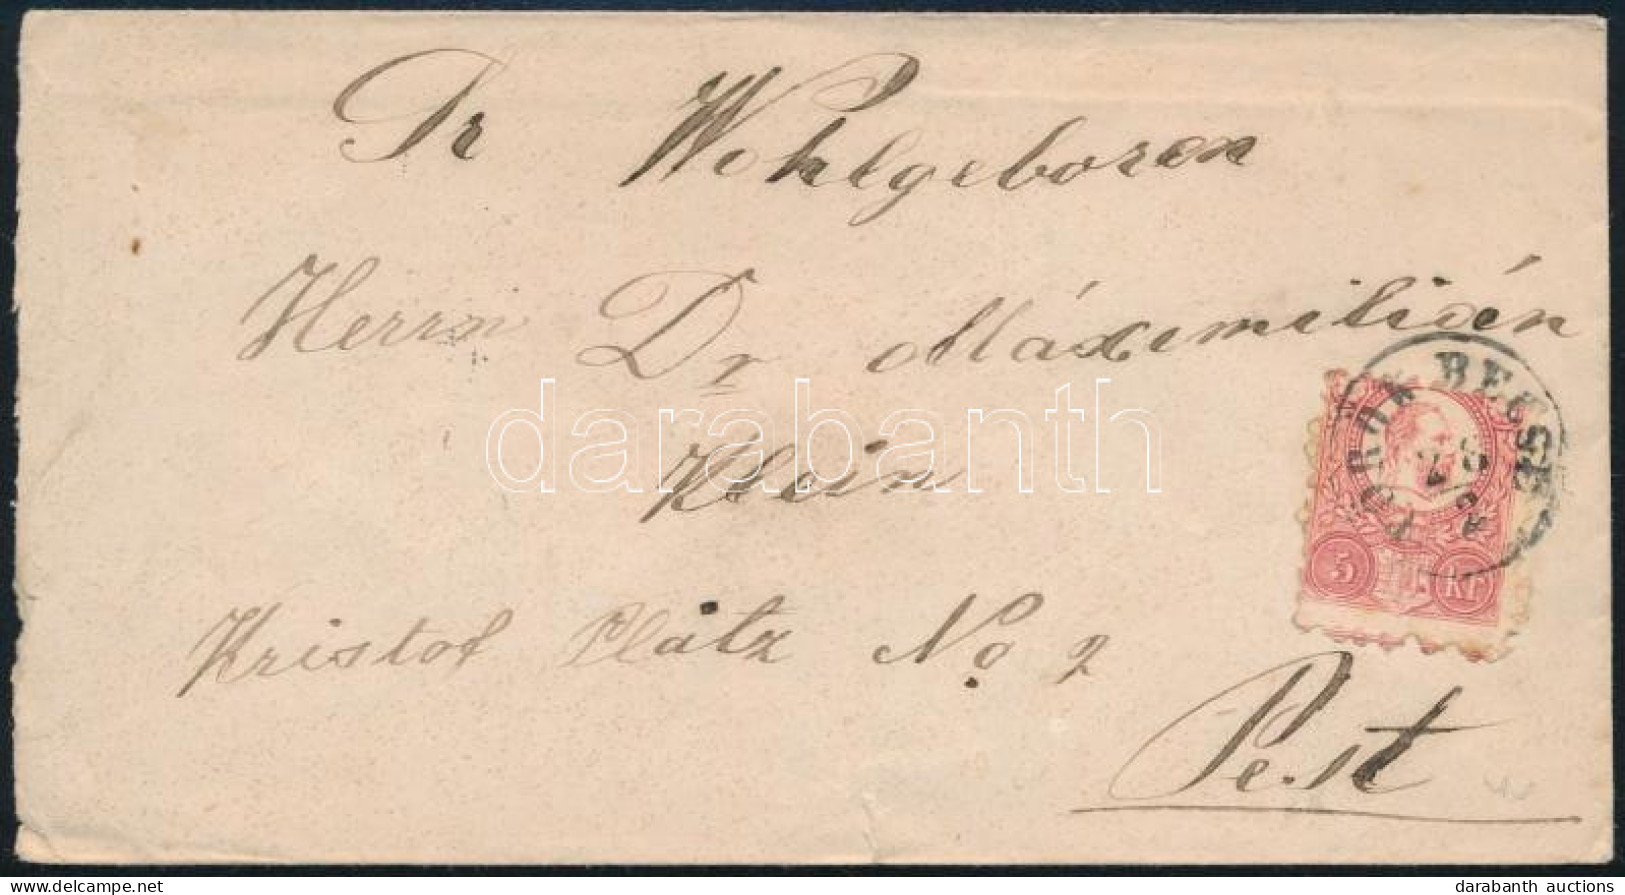 Sr Wohlgeboren
Herrn Dr Máximilián
Klein
Kristof Plátz No 2
Pest
TÖRÖK BECSE
5 Kr
darabanth
www.delcampe.net
darabanth auctions